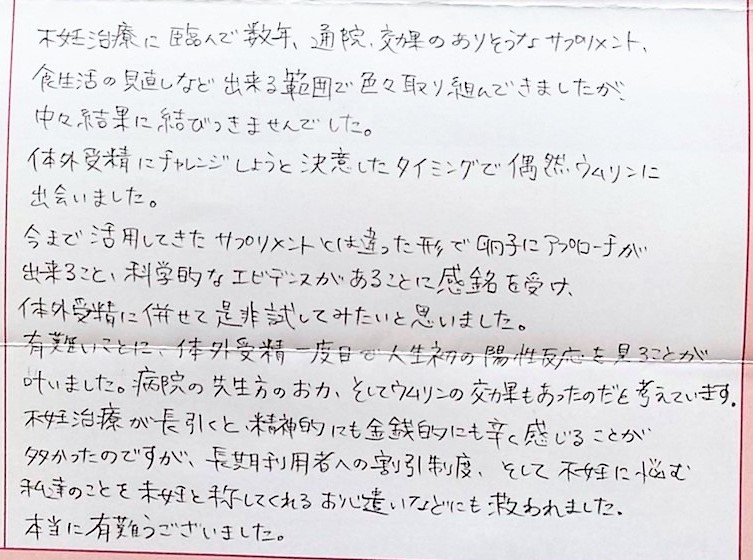 不妊治療に臨んで数年、通院、効果のありそうなサプリメント、
食生活の見直しなど出来る範囲で色々取り組んできましたが、
中々結果に結びつきませんでした。
体外受精にチャレンジしようと決意したタイミングで偶然ウムリンに
出会いました。
今まで活用してきたサプリメントとは違った形で卵子にアプローチが
出来ること、科学的なエビデンスがあることに感銘を受け、
体外受精に併せて是非試してみたいと思いました。
有難いことに、体外受精一度目で人生初の陽性反応を見ることが
叶いました。病院の先生方のお力、そしてウムリンの効果もあったのだと考えています。
不妊治療が長引くと、精神的にも金銭的にも辛く感じることが
多かったのですが、長期利用者への割引制度、そして不妊に悩む
私達のことを未妊と称してくれるお心遣いなどにも救われました。
本当に有難うございました。